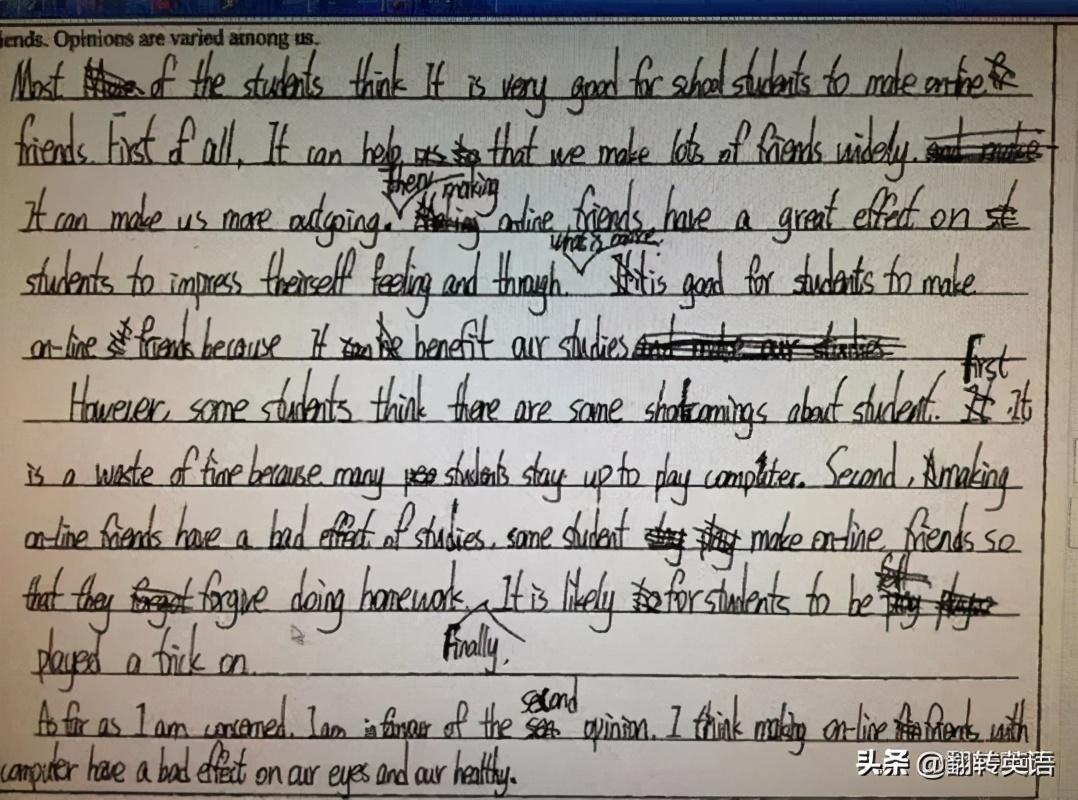 iends. Opinions are varied among us.
Most of the students think It is very good for school students to make on-line
friends. First of all, It can help that we make lots of friends widely.
It can make us more outgoing. then making on-line friends have a great effect on
students to impress theirself feeling and through. what is more. it is good for students to make
on-line friends because It benefit our studies
However, some students think there are some shotcomings about student. First. It
is a waste of time because many students stay up to play computer. Second, making
on-line friends have a bad effect of studies. some student make on-line friends so
that they forgive doing homework. Finally, It is likely for students to be
played a trick on.
As far as I am concerned. I am of the second opinion. I think making on-line friends with
computer have a bad effect on our eyes and our healthy.
头条 @翻转英语